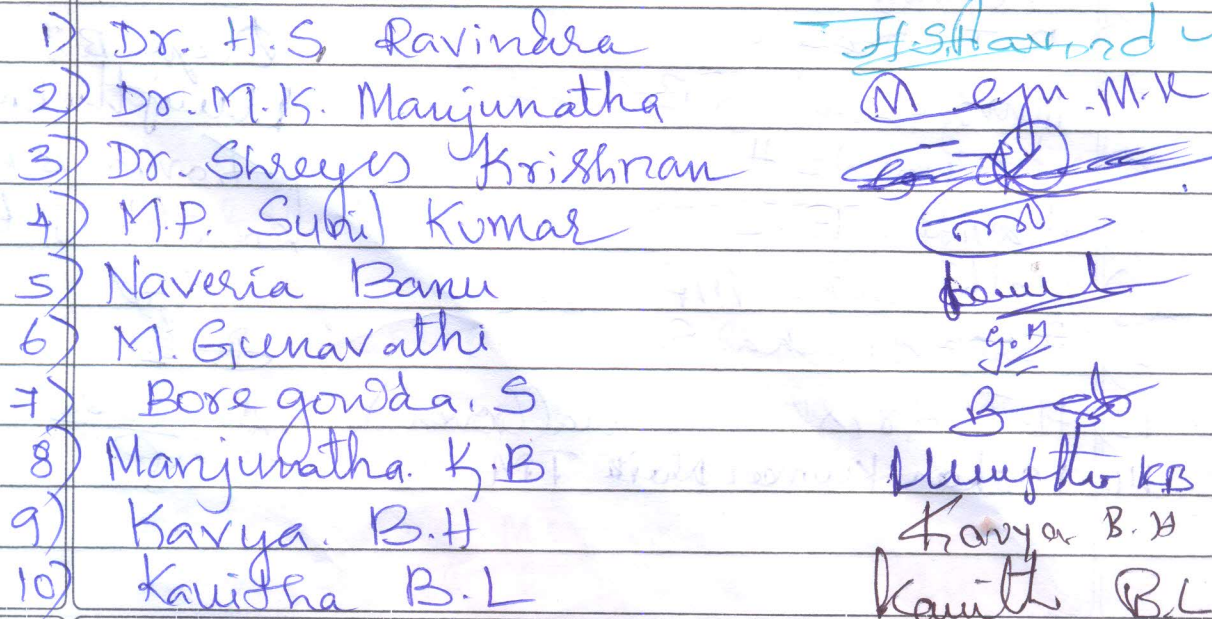 1) Dr. H.S. Ravindra
2) Dr. M.K. Manjunatha M.K
3) Dr. Shreyas Krishnan
4) M.P. Sunil Kumar
5) Naveria Banu
6) M. Gunavathi G.M
7) Boregowda. S B
8) Manjunatha. K.B KB
9) Kavya. B.H Kavya B.H
10) Kavitha B.L Kavith B.L